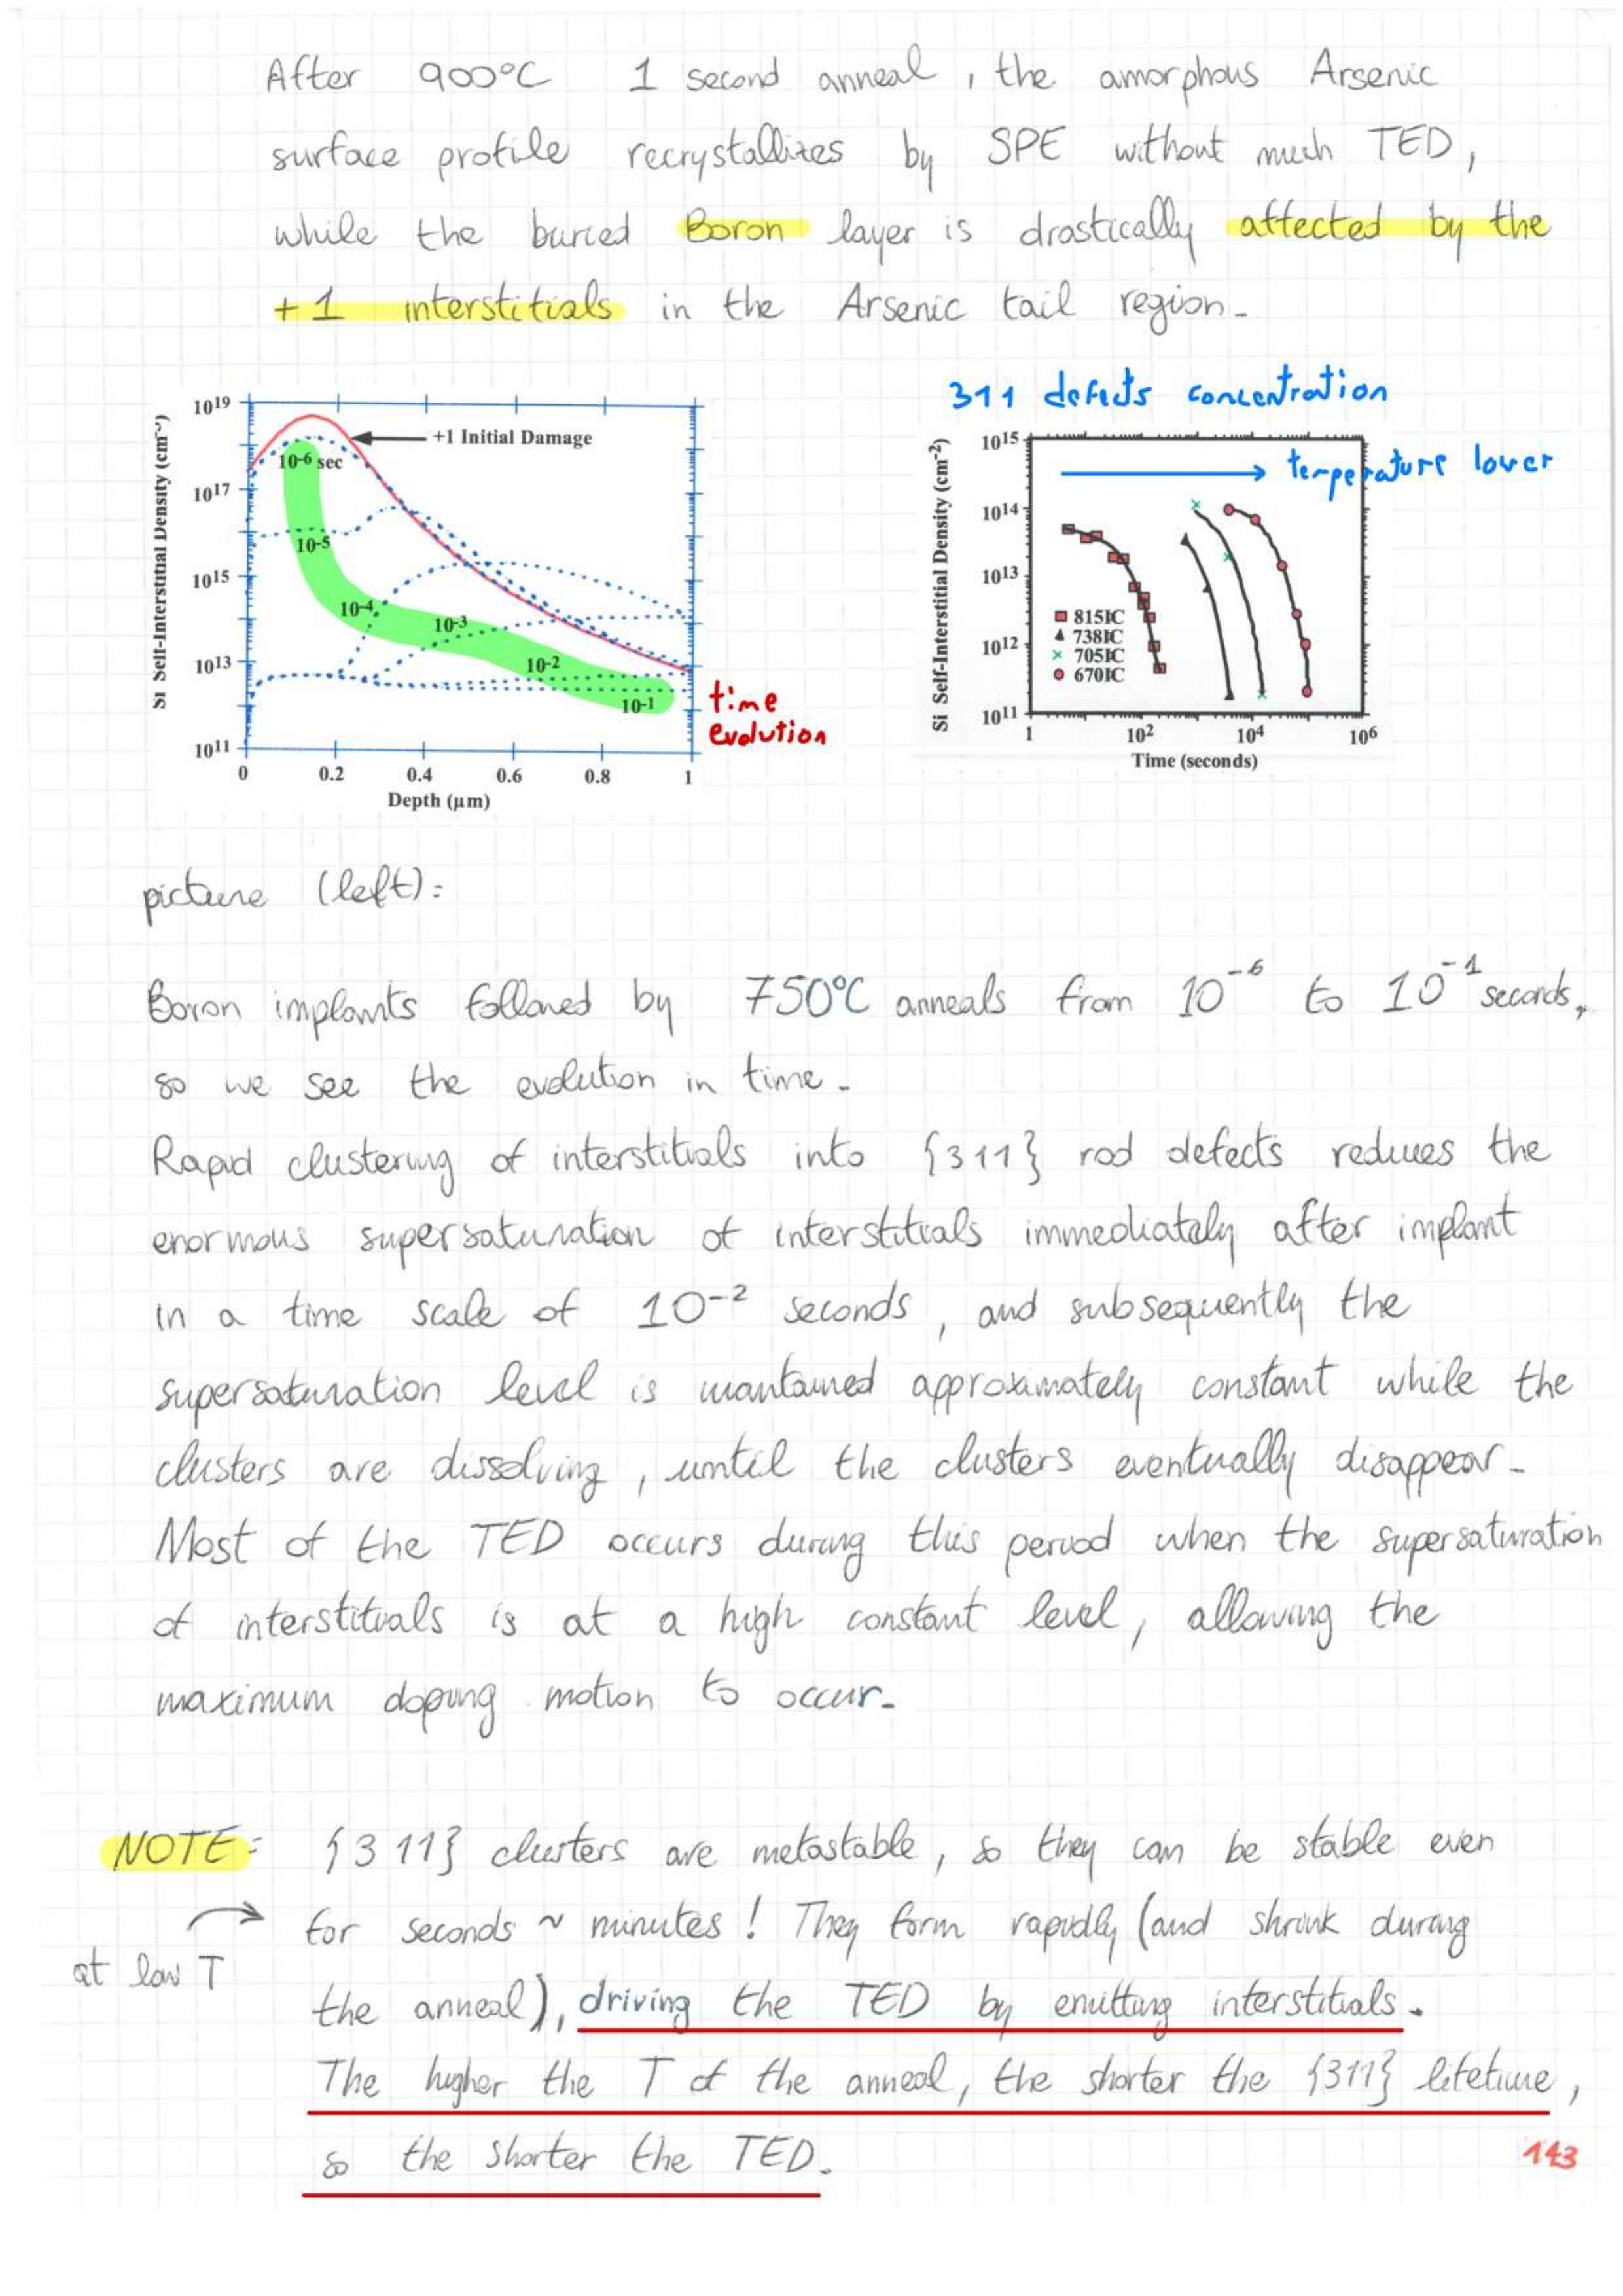 After 900°C 1 second anneal, the amorphous Arsenic
surface profile recrystallizes by SPE without much TED,
while the buried Boron layer is drastically affected by the
+1 interstitials in the Arsenic tail region.
311 defects concentration
Si Self-Interstitial Density (cm⁻³)
10¹⁹
10¹⁷
10¹⁵
10¹³
10¹¹
+1 Initial Damage
10⁻⁶ sec
10⁻⁵
10⁻⁴
10⁻³
10⁻²
10⁻¹
0 0.2 0.4 0.6 0.8 1
Depth (μm)
time
evolution
Si Self-Interstitial Density (cm⁻²)
10¹⁵
10¹⁴
10¹³
10¹²
10¹¹
temperature lower
815ÞC
738ÞC
705ÞC
670ÞC
1 10² 10⁴ 10⁶
Time (seconds)
picture (left):
Boron implants followed by 750°C anneals from 10⁻⁶ to 10⁻¹ seconds,
so we see the evolution in time.
Rapid clustering of interstitials into {311} rod defects reduces the
enormous supersaturation of interstitials immediately after implant
in a time scale of 10⁻² seconds, and subsequently the
supersaturation level is mantained approximately constant while the
clusters are dissolving, until the clusters eventually disappear.
Most of the TED occurs during this period when the supersaturation
of interstitials is at a high constant level, allowing the
maximum doping motion to occur.
NOTE: {311} clusters are metastable, so they can be stable even
for seconds ~ minutes! They form rapidly (and shrink during
at low T
the anneal), driving the TED by emitting interstitials.
The higher the T of the anneal, the shorter the {311} lifetime,
so the shorter the TED.
143